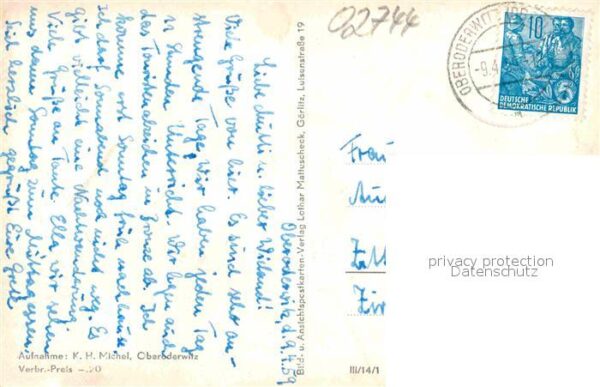 02744
OBERODERWITZ
-9.4.
10
DEUTSCHE
DEMOKRATISCHE REPUBLIK
Oberoderwitz, d. 9.4.59
Liebe Mutti u. lieber Wieland!
Viele Grüße von hier. Es sind sehr an-
strengende Tage. Wir haben jeden Tag
Stunden Unterricht. Wir legen auch
das Touristenabzeichen in Bronze ab. Ich
komme erst Sonntag früh nach Hause
Ich darf Sonnabend noch nicht weg. Es
gibt vielleicht eine Nachtwanderung.
Viele Grüße an Tante Ella wir sehen
uns dann Sonntag zum Mittagessen.
Seid herzlich gegrüßt Eure
Bild- u. Ansichtspostkarten-Verlag Lothar Mattuscheck, Görlitz, Luisenstraße 19
Frau
Zitt
Aufnahme: K. H. Michel, Oberoderwitz
Verbr.-Preis -.20
III/14/1
privacy protection
Datenschutz